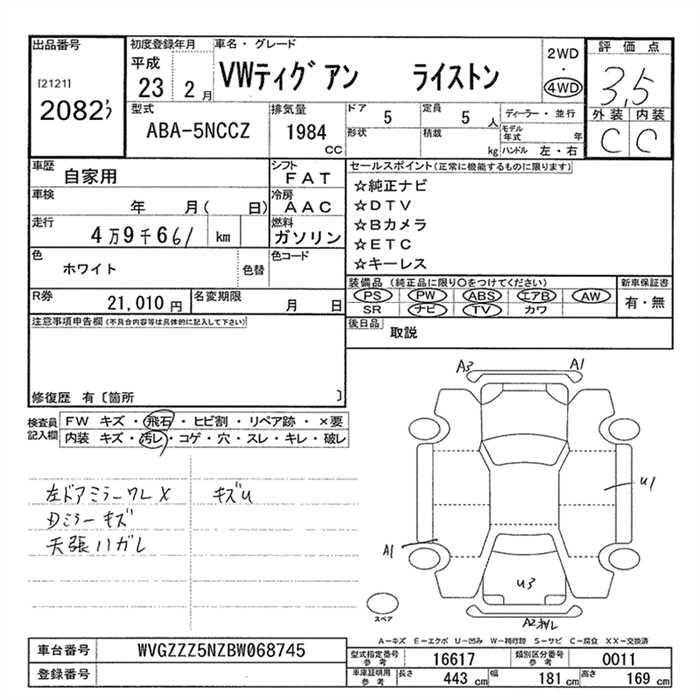 出品番号
[2121]
2082
初度登録年月
平成
23 2月
車名・グレード
VWティグアン ライストン
2WD
・
4WD
評価点
3.5
外装 内装
C C
型式
ABA-5NCCZ
排気量
1984
cc
ドア 5
定員 5 人
形状
積載 kg
ディーラー・並行
モデル年式 年
ハンドル 左・右
車歴
自家用
シフト
FAT
車検
年 月( 日)
冷房
AAC
走行
4万9千661 km
燃料
ガソリン
色
ホワイト
色替
色コード
R券
21,010円
名変期限
月 日
セールスポイント(正常に機能するものに限ります)
☆純正ナビ
☆DTV
☆Bカメラ
☆ETC
☆キーレス
装備品(純正品に限り○をつけてください)
PS PW ABS エアB AW
SR ナビ TV カワ
新車保証書
有・無
後日品
取説
注意事項申告欄(不具合内容等は具体的に記入して下さい)
修復歴 有〔箇所 〕
検査員
記入欄
FW キズ・飛石・ヒビ割・リペア跡・×要
内装 キズ・汚レ・コゲ・穴・スレ・キレ・破レ
左ドアミラーワレX キズU
Dミラーキズ
天張ハガレ
A3 A1
U1
A1
U3
A2
スペア
A-キズ E-エクボ U-凹み W-補修跡 S-サビ C-腐食 XX-交換済
車台番号
WVGZZZ5NZBW068745
登録番号
型式指定番号
参考
16617
類別区分番号
参考
0011
車庫証明用
参考
長さ 443 cm
幅 181 cm
高さ 169 cm